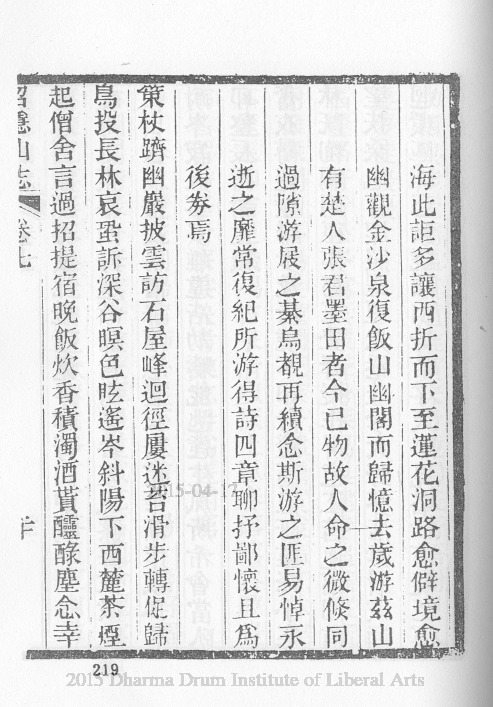 海此詎多讓西折而下至蓮花洞路愈僻境愈
幽觀金沙泉復飯山幽閣而歸憶去歲游茲山
有楚人張君墨田者今已物故人命之微倏同
過隙游屐之綦烏覩再續念斯游之匪易悼永
逝之靡常復紀所游得詩四章聊抒鄙懷且為
後券焉
策杖躋幽巖披雲訪石屋峰迴徑屢迷苔滑步轉促歸
鳥投長林哀蛩訴深谷暝色眩遙岑斜陽下西麓茶煙
起僧舍言過招提宿晚飯炊香積濁酒貰醽醁塵念幸
招隱山志 卷七
二十
219
2015-04-17
2015 Dharma Drum Institute of Liberal Arts